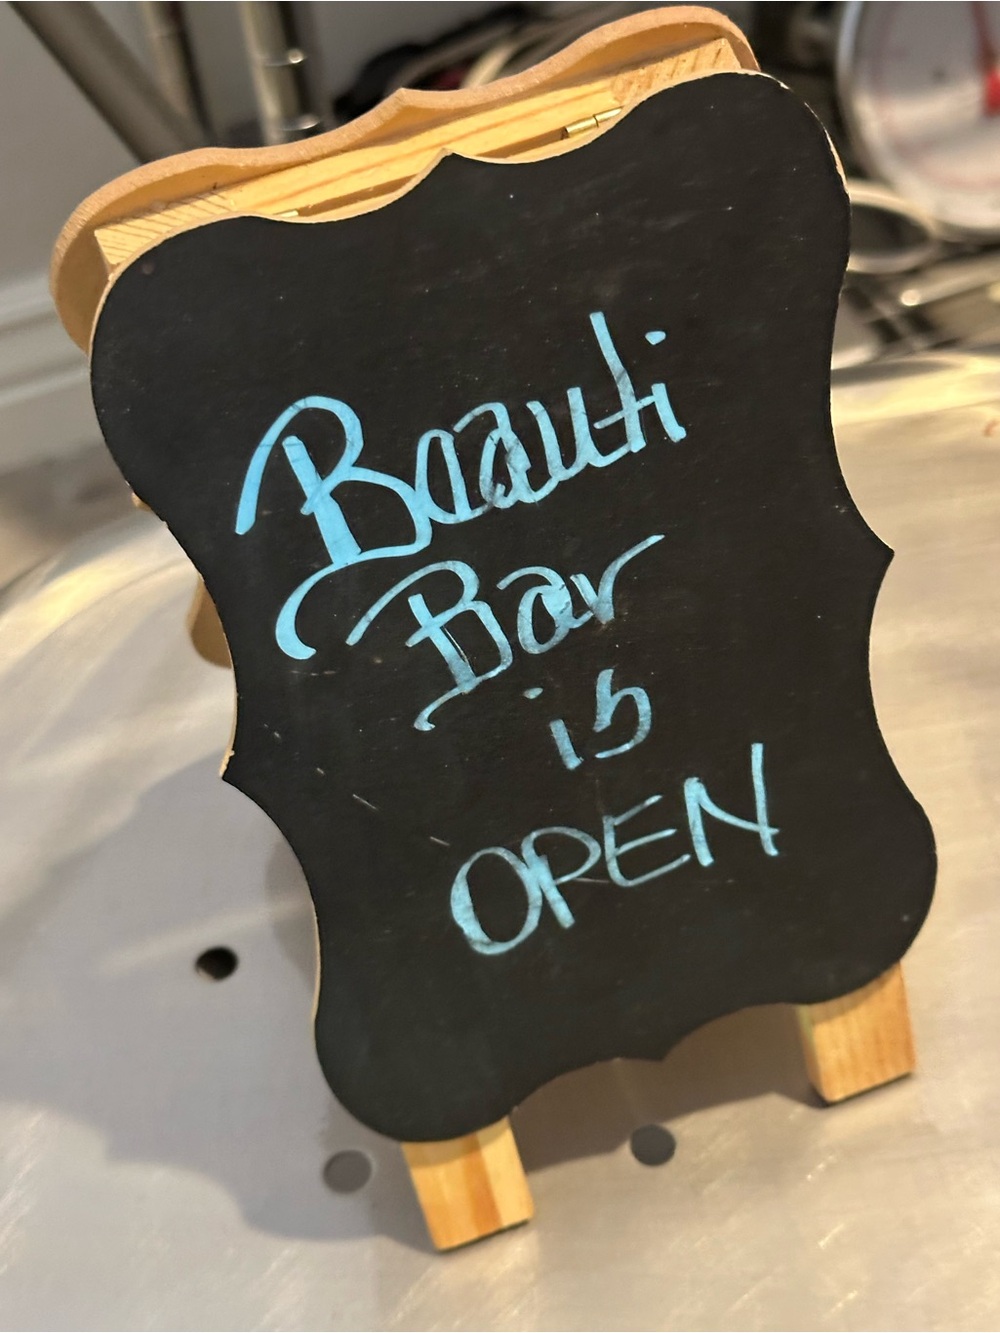 Beauti
Bar
is
OPEN